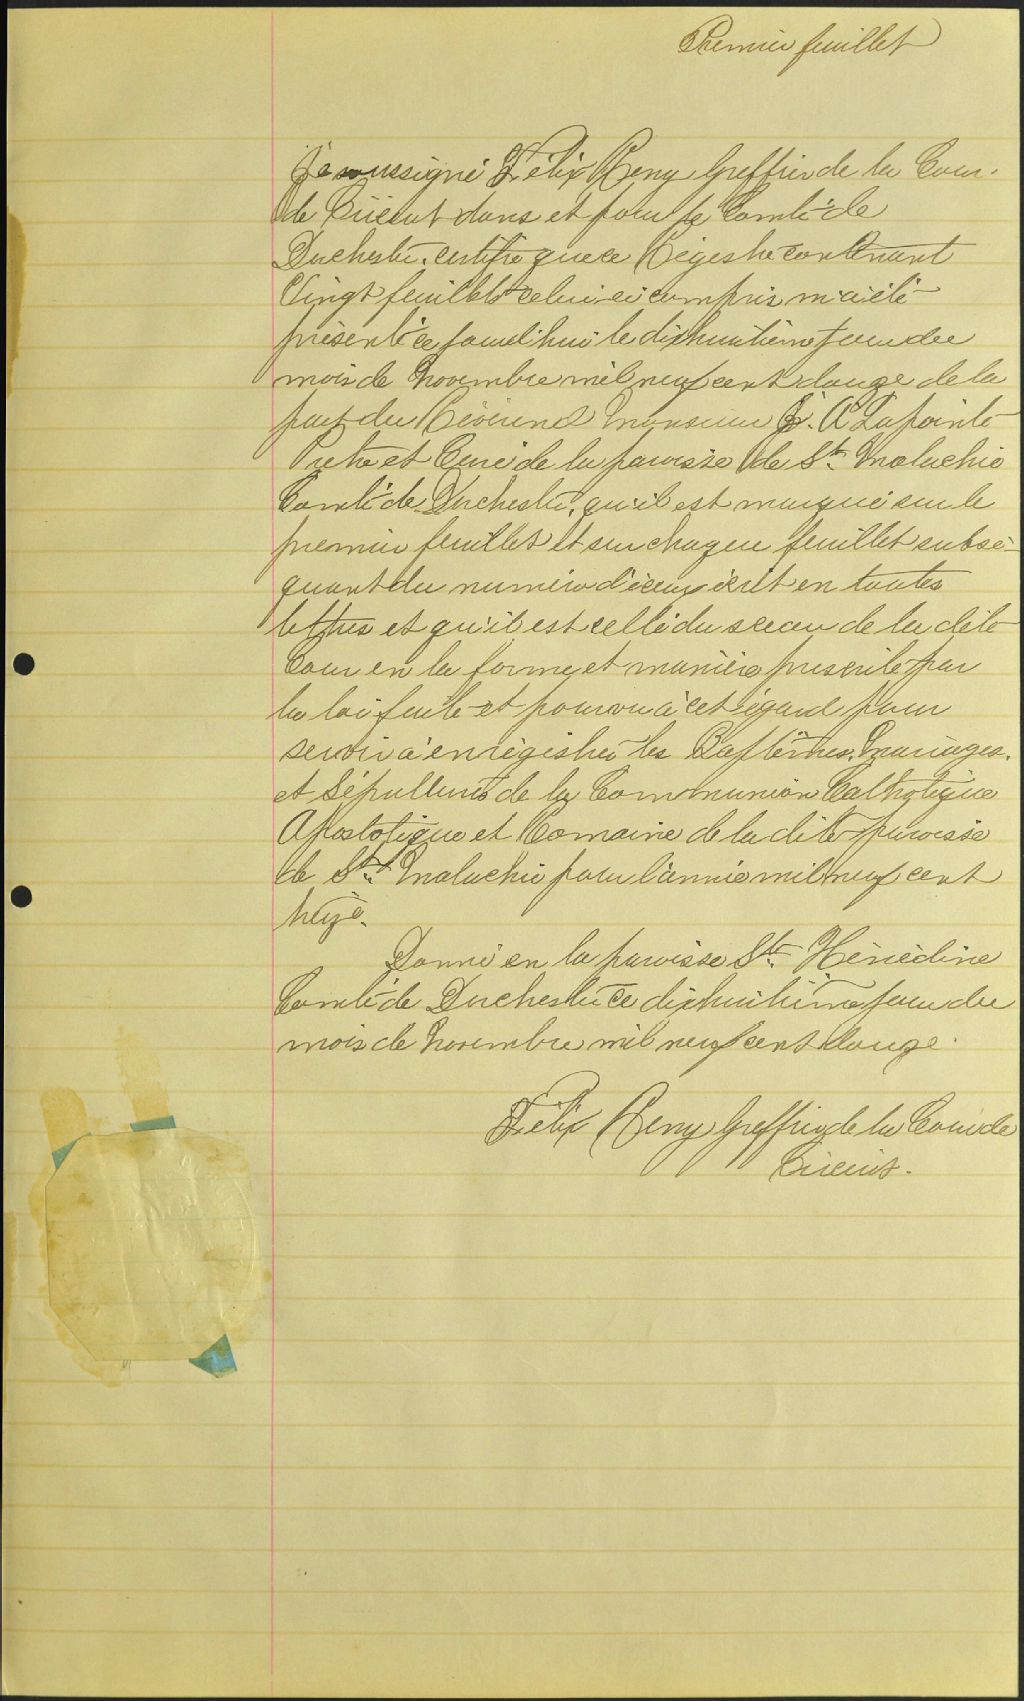 Premier feuillet
Je soussigné Félix Remy Greffier de la Cour
de Circuit dans et pour le Comté de
Dorchester, certifie que ce Régistre contenant
Vingt feuillets celui-ci compris m'a été
présenté ce jourd'hui le dixhuitième jour du
mois de Novembre mil neuf cent douze de la
part du Révérend Monsieur J. A Lapointe
Prêtre et Curé de la paroisse de St. Malachie
Comté de Dorchester, qu'il est marqué sur le
premier feuillet et sur chaque feuillet subsé-
quant du numéro d'iceux écrit en toutes
lettres et qu'il est cellé du sceau de la dite
Cour en la forme et manière prescrite par
la loi faite et pourvu à cet égard pour
servir à enrégistrer les Baptêmes, Mariages.
et Sépultures de la Communion Catholique
Apostolique et Romaine de la dite paroisse
de St. Malachie pour l'année mil neuf cent
treize.
Donné en la paroisse Ste. Hénédine
Comté de Dorchester ce dixhuitième jour du
mois de Novembre mil neuf cent douze.
Félix Remy Greffier de la Cour de
Circuit.